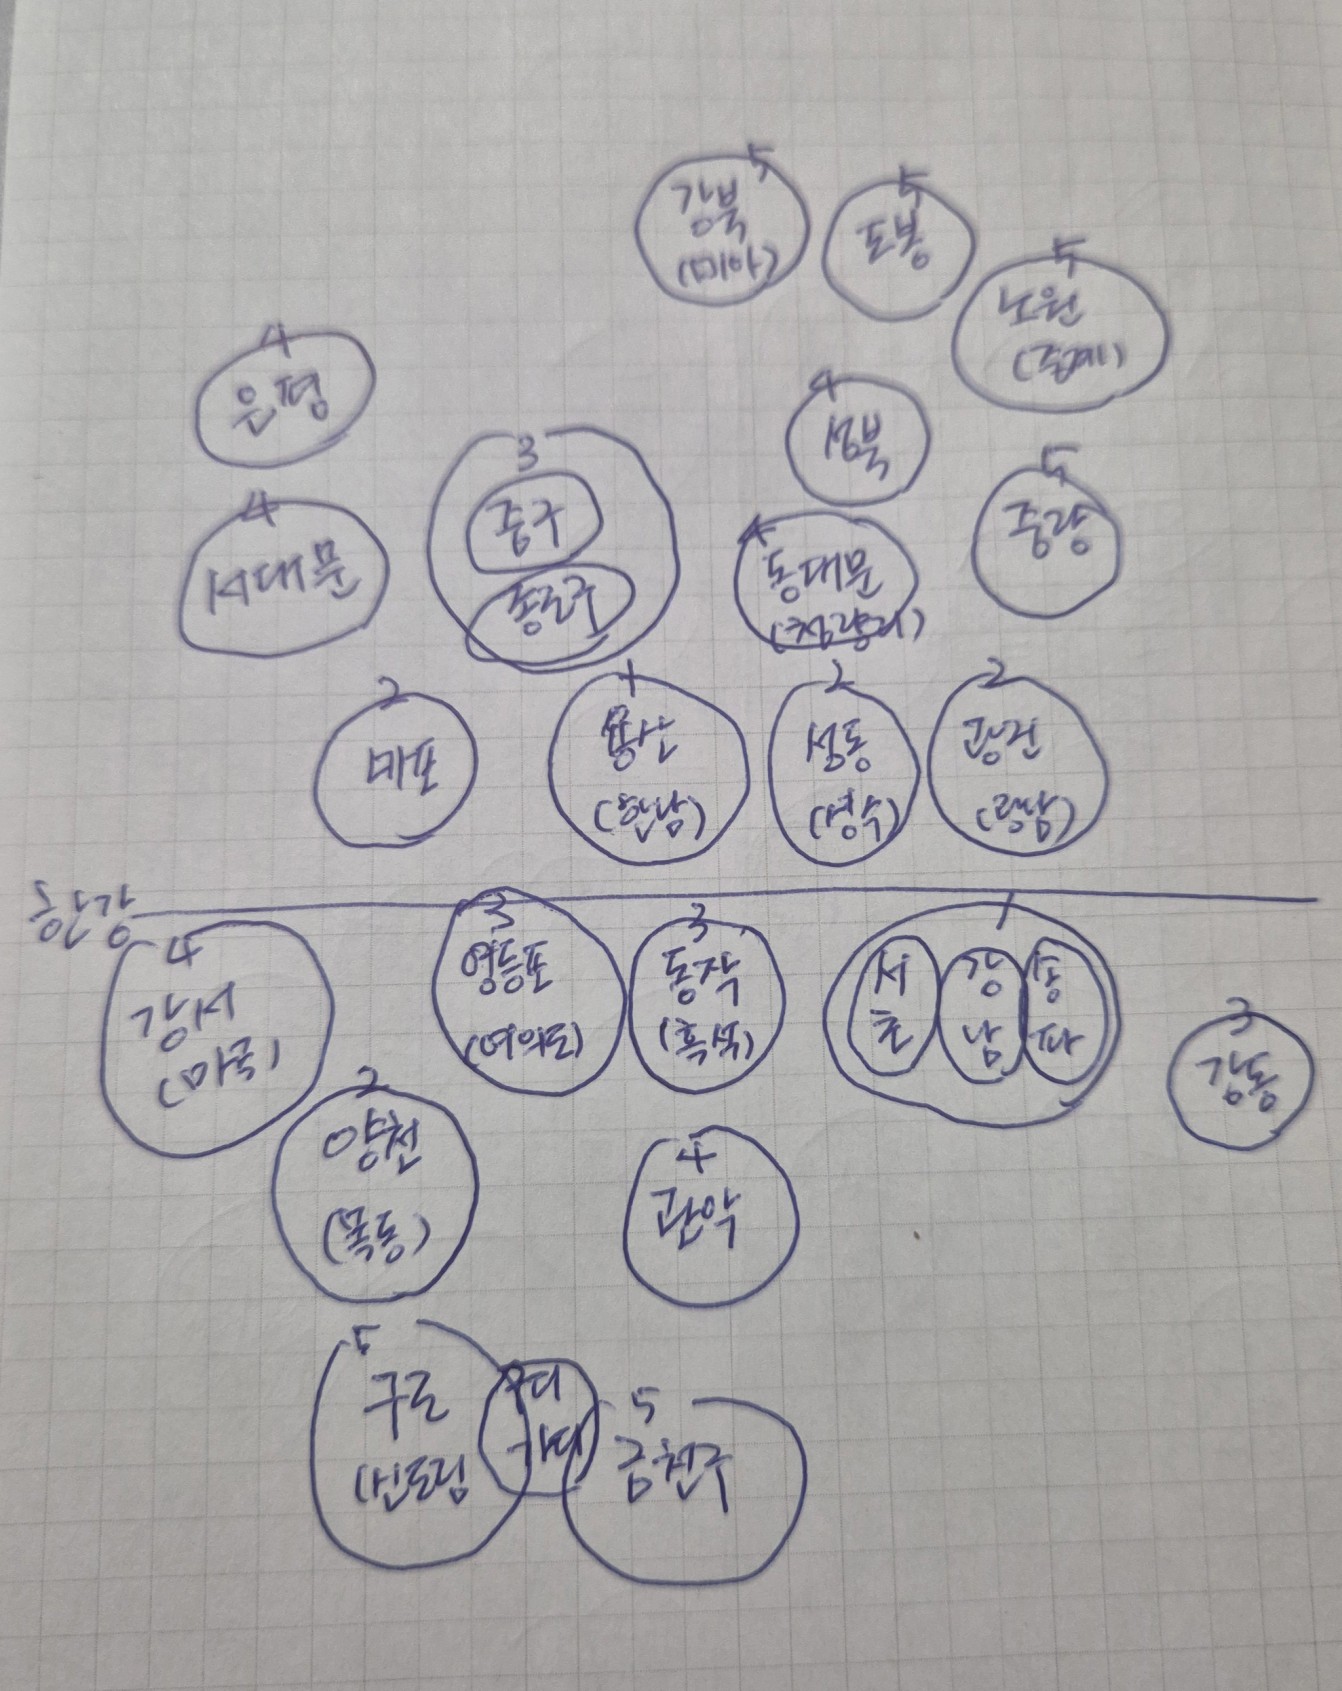 5
강북
(미아)
5
도봉
5
노원
(중계)
4
은평
4
성북
3
중구
종로구
5
중랑
4
서대문
4
동대문
(청량리)
2
마포
1
용산
(한남)
2
성동
(성수)
2
광진
(광남)
한강
4
강서
(마곡)
3
영등포
(여의도)
3
동작
(흑석)
1
서초
강남
송파
3
강동
2
양천
(목동)
4
관악
5
구로
(신도림
구디
가디
5
금천구